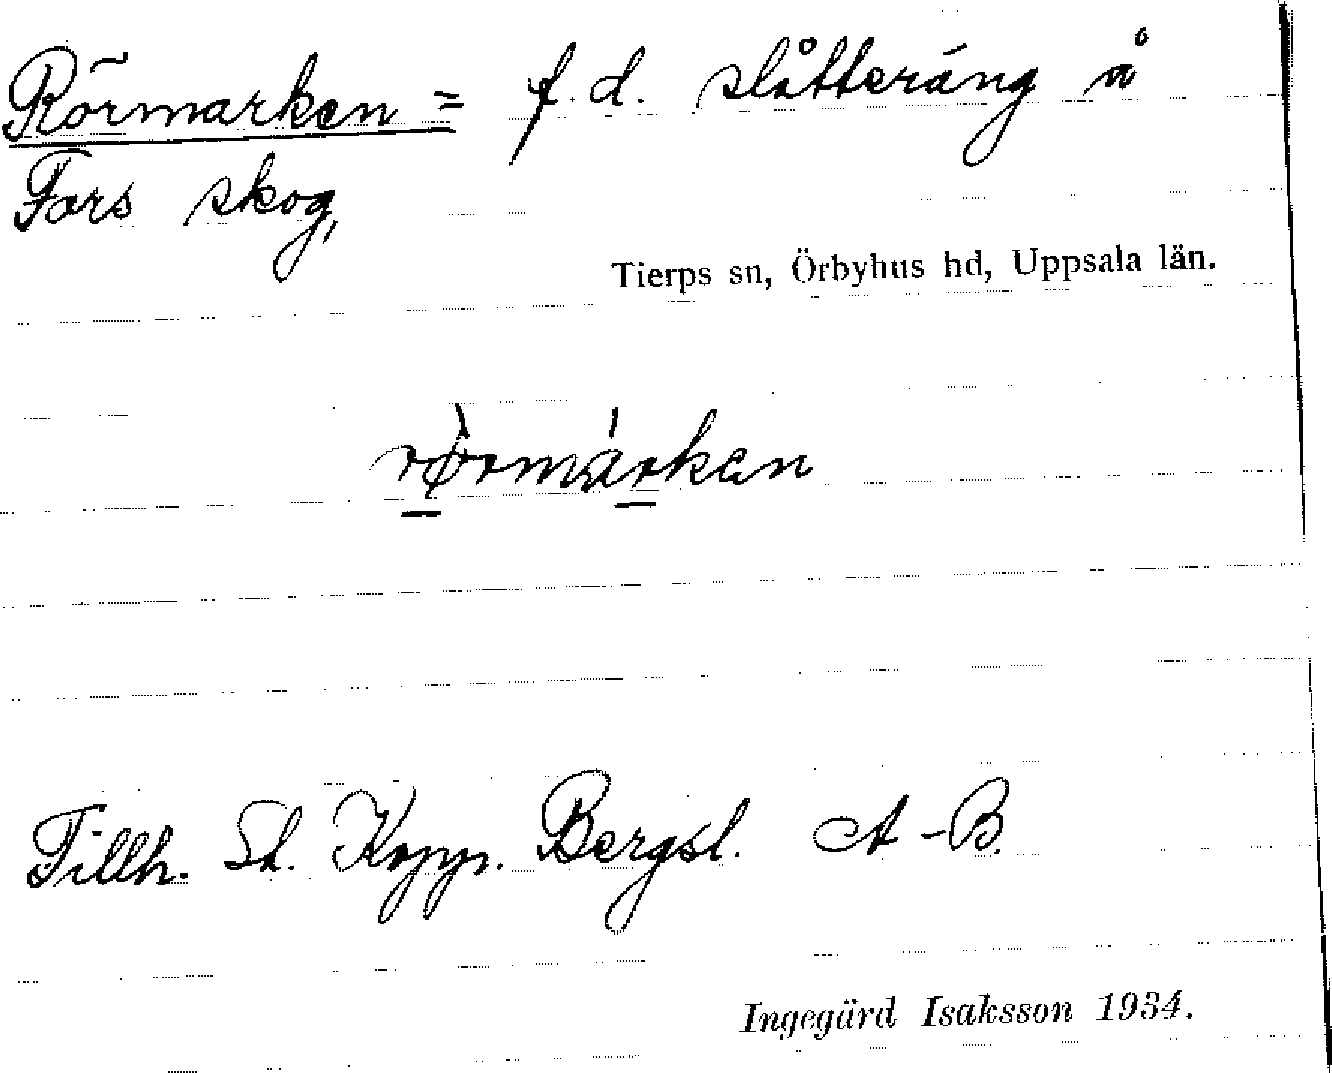 Rörmarken = f.d. slåtteräng å
Fors skog,
Tierps sn, Örbyhus hd, Uppsala län.
rørmarken
Tillh. St. Kopp. Bergsl. A-B.
Ingegärd Isaksson 1934.